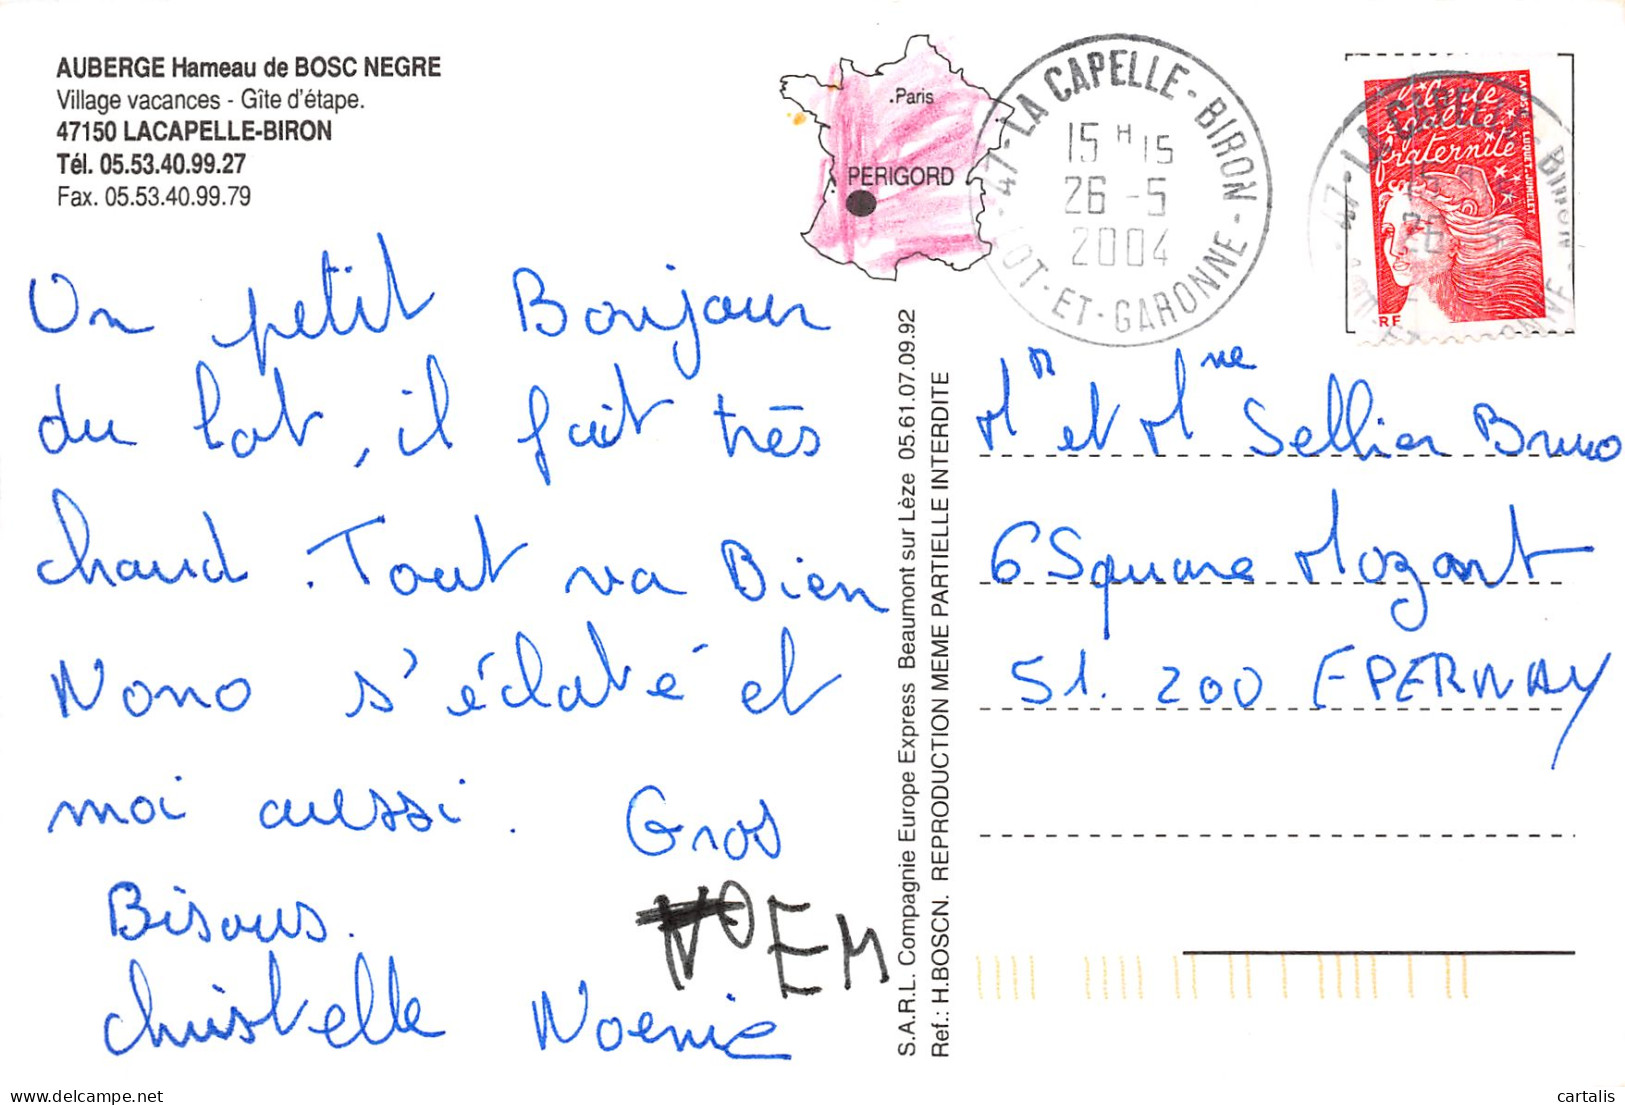 AUBERGE Hameau de BOSC NEGRE
Village vacances - Gîte d'étape.
47150 LACAPELLE-BIRON
Tél. 05.53.40.99.27
Fax. 05.53.40.99.79
.Paris
PERIGORD
47 - LA CAPELLE - BIRON -
15 H 15
26 - 5
2004
LOT - ET - GARONNE
liberté
égalité
fraternité
RF
Un petit Bonjour
du lot, il fait très
chaud. Tout va Bien
Nono s'éclate et
moi aussi. Gros
Bisous.
christelle Noemie
NOEM
S.A.R.L. Compagnie Europe Express Beaumont sur Lèze 05.61.07.09.92
Ref.: H.BOSCN. REPRODUCTION MEME PARTIELLE INTERDITE
Mr et Mme Sellier Bruno
6 Square Mozart
51. 200 EPERNAY
cartalis
© delcampe.net